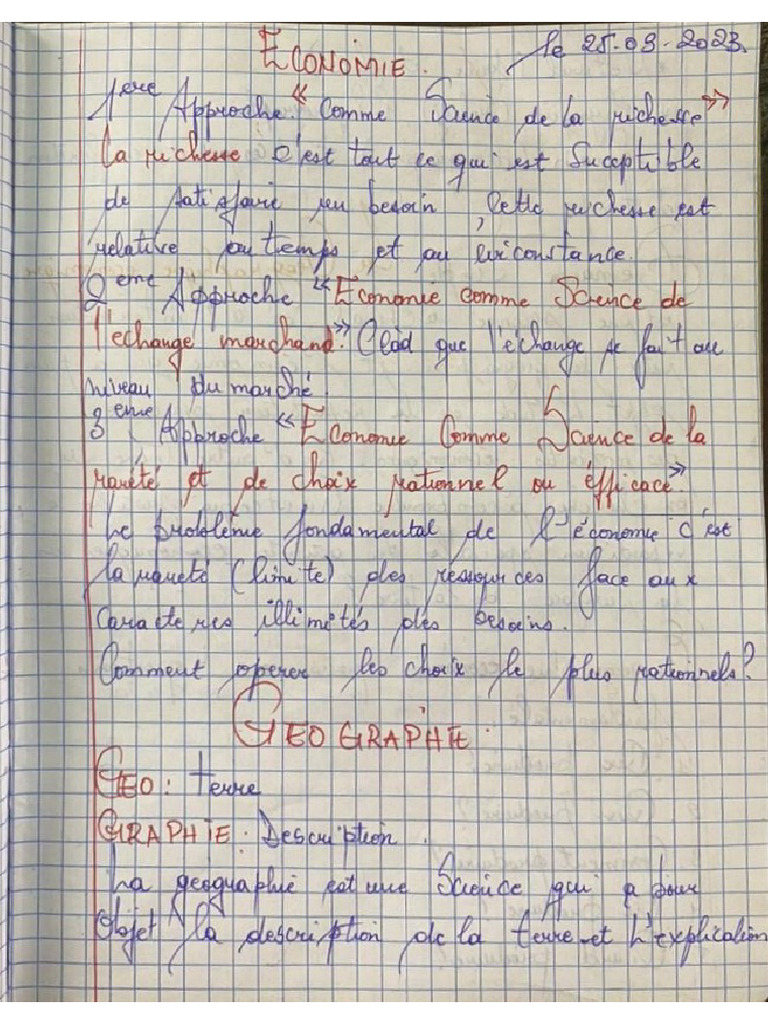 le 25-09-2023
ECONOMIE.
1ere Approche "Comme Science de la richesse"
La richesse c'est tout ce qui est Suceptible
de satisfaire un besoin, Cette richesse est
relative au temps et au circonstance.
2eme Approche "Economie comme Science de
l'echange marchand". Càd que l'échange se fait au
niveau du marché.
3eme Approche "Economie Comme Science de la
rareté et de choix rationnel ou éfficace".
Le problème fondamental de l'économie c'est
la rareté (limite) des ressources face aux
Caracteres illimités des besoins.
Comment operer les choix le plus rationnels?
GEOGRAPHIE.
GEO: terre
GRAPHIE: Description.
La geographie est une Science qui a pour
Objet la description de la terre et L'explication